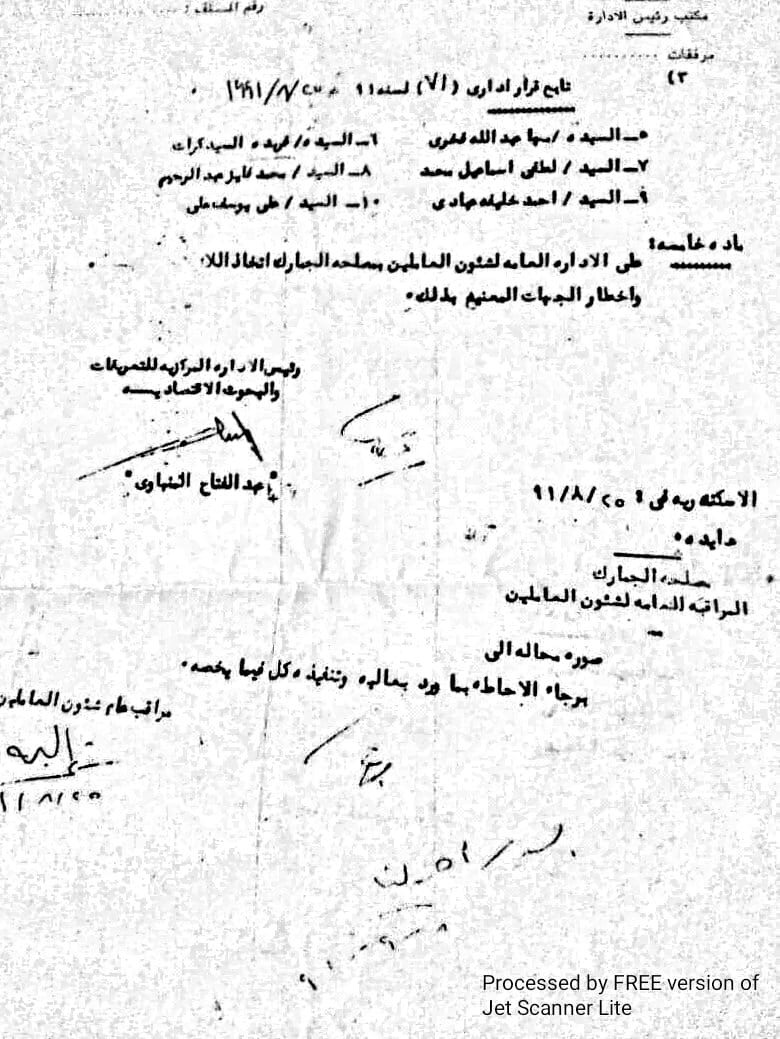 رقم المسلف :
مكتب رئيس الادارة
مرفقات ..........
(٣
تابع قرار ادارى (٧١) لسنه ٩١
٥ــ السيده / سها عبد الله فخرى ٦ــ السيده / فهيده السيد كرات
٧ــ السيد / لطفى اسماعيل محمد ٨ــ السيد / محمد فايز عبد الرحيم
٩ــ السيد / احمد خليفه عبادى ١٠ــ السيد / على يوسف على
ماده خامسه :
على الاداره العامه لشئون العاملين بمصلحه الجمارك اتخاذ اللا
واخطار الجهات المعنيه بذلك .
رئيس الاداره المركزيه للتعريفات
والبحوث الاقتصاديــــه
عبد الفتاح
الاسكندريه فى : ٩١/٨/٢٥
عايده .
مصلحه الجمارك
المراقبه العامه لشئون العاملين
صوره محاله الى
برجاء الاحاطه بما ورد بعاليه وتنفيذه كل فيما يخصه .
مراقب عام شئون العاملين
Processed by FREE version of
Jet Scanner Lite